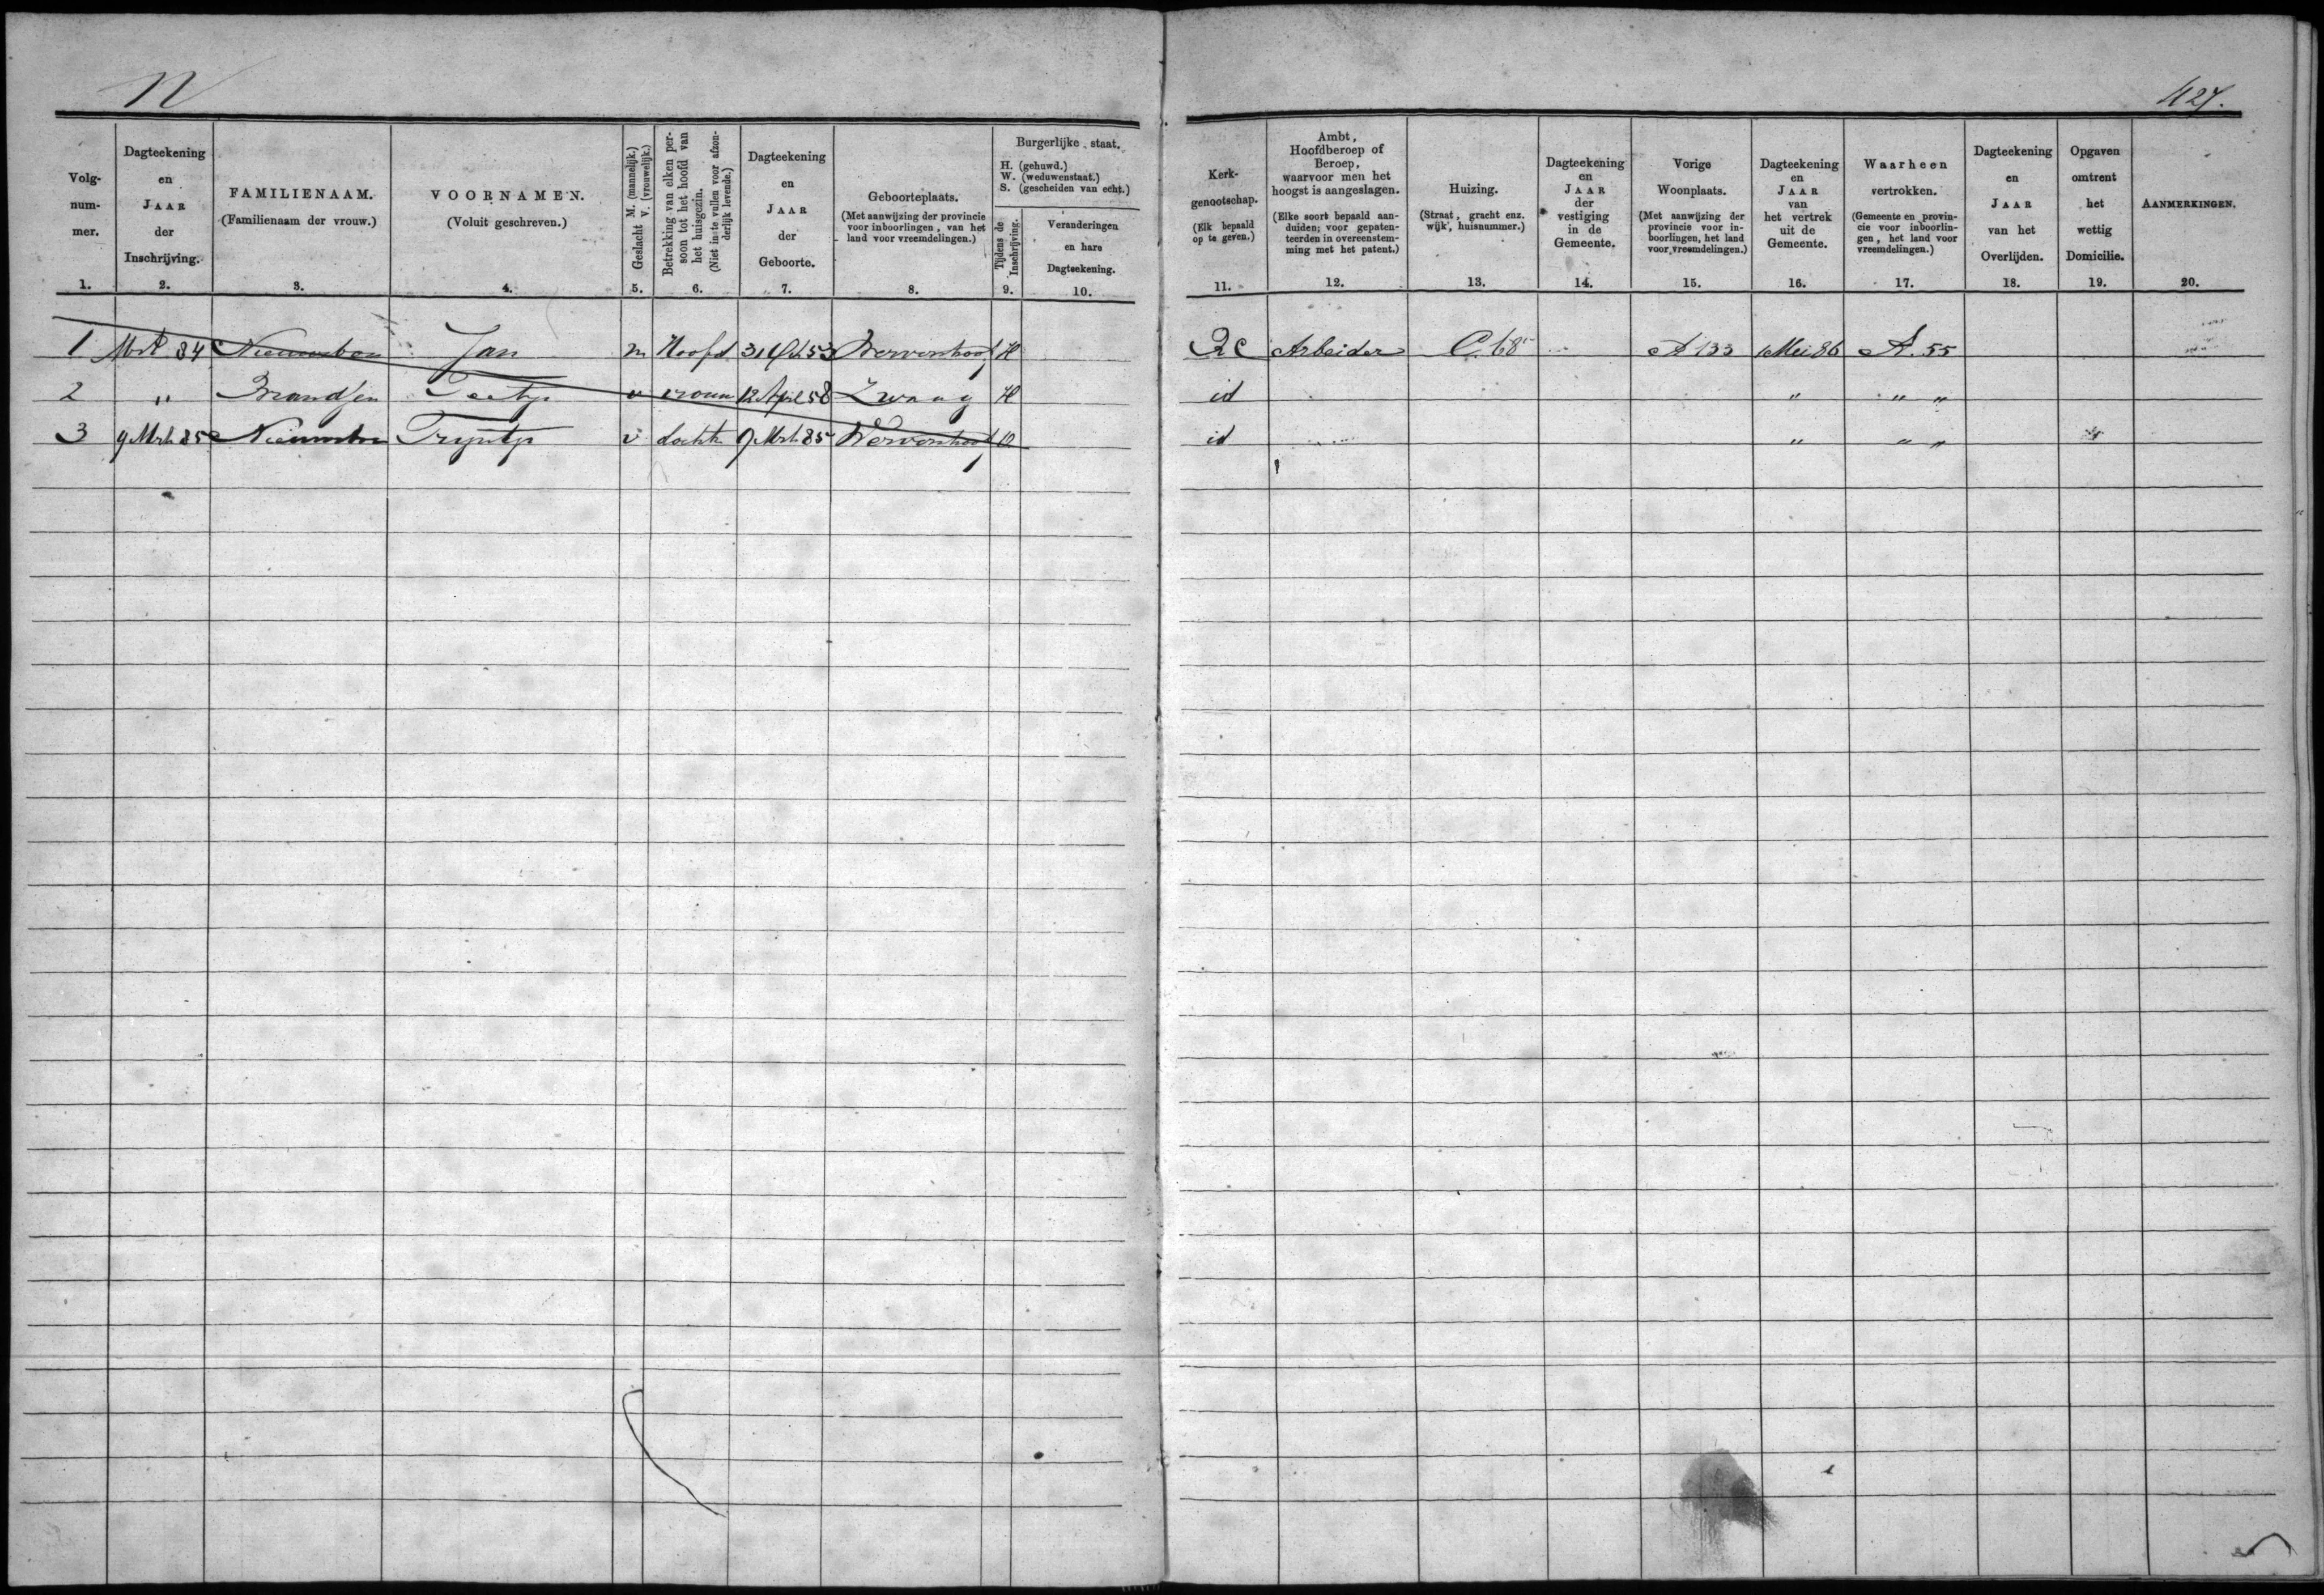 N
427.
Volg-
num-
mer.
1.
Dagteekening
en
JAAR
der
Inschrijving.
2.
FAMILIENAAM.
(Familienaam der vrouw.)
3.
VOORNAMEN.
(Voluit geschreven.)
4.
Geslacht M. (mannelijk.)
V. (vrouwelijk.)
5.
Betrekking van elken per-
soon tot het hoofd van
het huisgezin.
(Niet in te vullen voor afzon-
derlijk levende.)
6.
Dagteekening
en
JAAR
der
Geboorte.
7.
Geboorteplaats.
(Met aanwijzing der provincie
voor inboorlingen, van het
land voor vreemdelingen.)
8.
Burgerlijke staat.
H. (gehuwd.)
W. (weduwenstaat.)
S. (gescheiden van echt.)
Tijdens de
Inschrijving.
9.
Veranderingen
en hare
Dagteekening.
10.
Kerk-
genootschap.
(Elk bepaald
op te geven.)
11.
Ambt,
Hoofdberoep of
Beroep,
waarvoor men het
hoogst is aangeslagen.
(Elke soort bepaald aan-
duiden; voor gepaten-
teerden in overeenstem-
ming met het patent.)
12.
Huizing.
(Straat, gracht enz.
wijk, huisnummer.)
13.
Dagteekening
en
JAAR
der
vestiging
in de
Gemeente.
14.
Vorige
Woonplaats.
(Met aanwijzing der
provincie voor in-
boorlingen, het land
voor vreemdelingen.)
15.
Dagteekening
en
JAAR
van
het vertrek
uit de
Gemeente.
16.
Waarheen
vertrokken.
(Gemeente en provin-
cie voor inboorlin-
gen, het land voor
vreemdelingen.)
17.
Dagteekening
en
JAAR
van het
Overlijden.
18.
Opgaven
omtrent
het
wettig
Domicilie.
19.
AANMERKINGEN.
20.
1 Mrt 84 Nieuwboer Jan m Hoofd 31 53 Wervershoof H RC Arbeider C. 68 A 133 1 Mei 86 A. 55
2 " Brandsen v vrouw 12 April 58 Zwaag H id " " "
3 9 Mrt 85 Nieuwboer Trijntje v dochter 9 Mrt 85 Wervershoof O id " " "